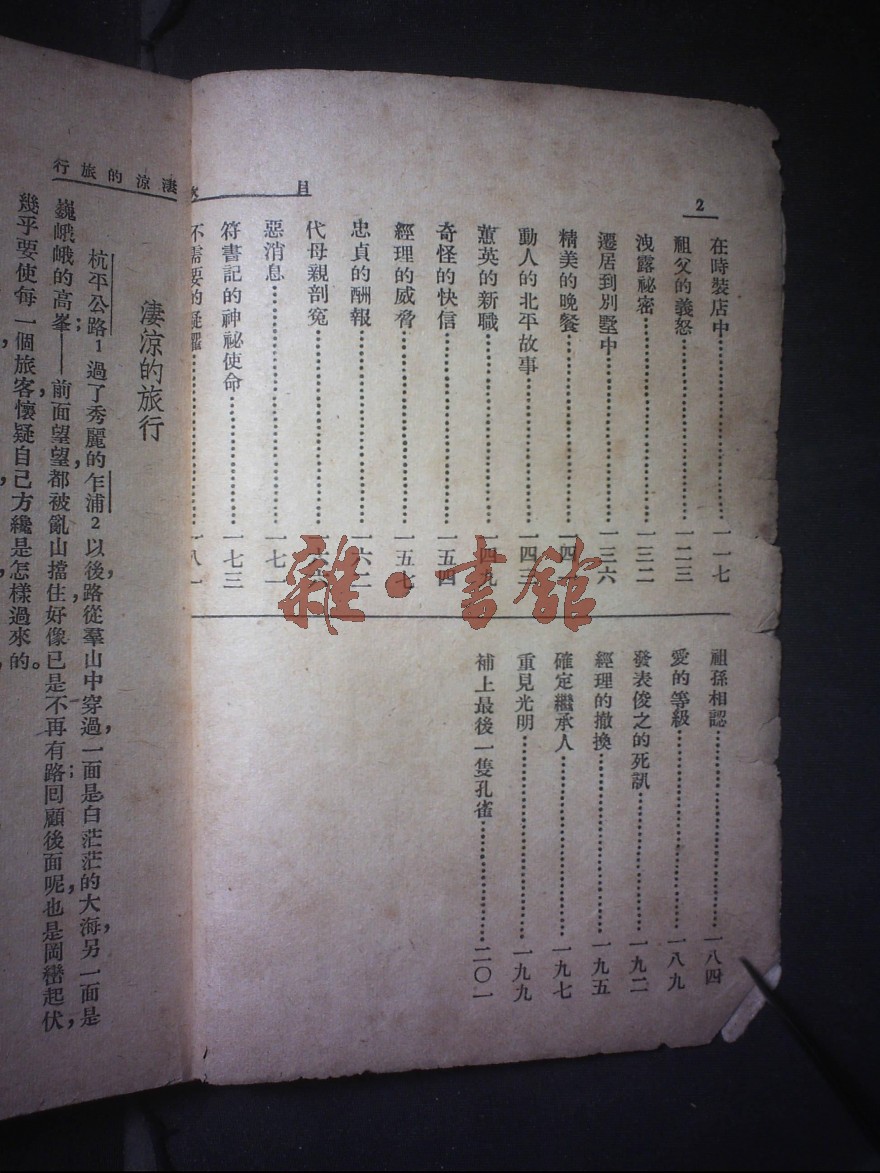 2
目
在時裝店中⋯⋯一一七
祖父的義怒⋯⋯一二三
洩露祕密⋯⋯一三二
遷居到別墅中⋯⋯一三六
精美的晚餐⋯⋯一四一
動人的北平故事⋯⋯一四三
蕙英的新職⋯⋯一四九
奇怪的快信⋯⋯一五四
經理的威脅⋯⋯一五七
忠貞的酬報⋯⋯一六二
代母親剖冤⋯⋯一六六
惡消息⋯⋯一七一
符書記的神祕使命⋯⋯一七三
不需要的⋯⋯一八一
祖孫相認⋯⋯一八四
愛的等級⋯⋯一八九
發表俊之的死訊⋯⋯一九二
經理的撤換⋯⋯一九五
確定繼承人⋯⋯一九七
重見光明⋯⋯一九九
補上最後一隻孔雀⋯⋯二〇一
淒涼的旅行
淒涼的旅行
杭平公路1過了秀麗的乍浦2以後,路從羣山中穿過,一面是白茫茫的大海,另一面是
巍峨峨的高峯——前面望望,都被亂山擋住,好像已是不再有路;回顧後面呢,也是岡巒起伏,
幾乎要使每一個旅客懷疑自己方纔是怎樣過來的。
雜·書館